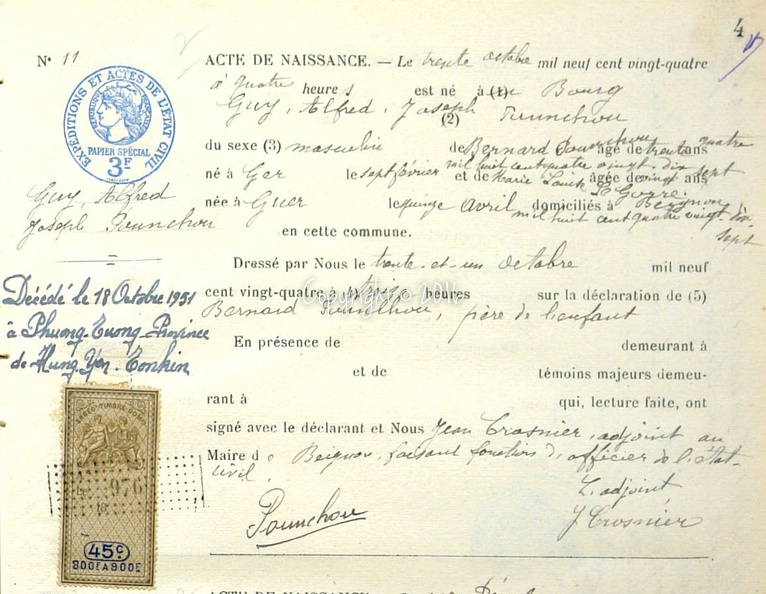 4
N° 11
ACTE DE NAISSANCE. — Le trente octobre mil neuf cent vingt-quatre
à quatre heures est né à (1) Le Bourg
Guy, Alfred, Joseph Pounchou
(2)
du sexe (3) masculin de Bernard Pounchou âgé de trente quatre ans
né à Ger le sept février mil huit cent quatre vingt dix et de Marie Louise Le Goyre âgée de vingt sept ans
née à Guer le quinze avril mil huit cent quatre vingt dix sept domiciliés à Beignon
en cette commune.
Dressé par Nous le trente-et-un octobre mil neuf
cent vingt-quatre à heures sur la déclaration de (5)
Bernard Pounchou, père de l'enfant
En présence de demeurant à
et de témoins majeurs demeu-
rant à qui, lecture faite, ont
signé avec le déclarant et Nous Jean Crosnier, adjoint au
Maire de Beignon, faisant fonctions d'officier de l'état-
civil.
L'adjoint,
Pounchou
J Crosnier
EXPÉDITIONS ET ACTES DE L'ÉTAT CIVIL
PAPIER SPÉCIAL
3F
Guy, Alfred
Joseph Pounchou
Décédé le 18 Octobre 1951
à Phuong-Tuong-Province
de Hung Yen-Tonkin
976
45c
800F A 900F
Copyright © 2016
ACTE DE NAISSANCE.